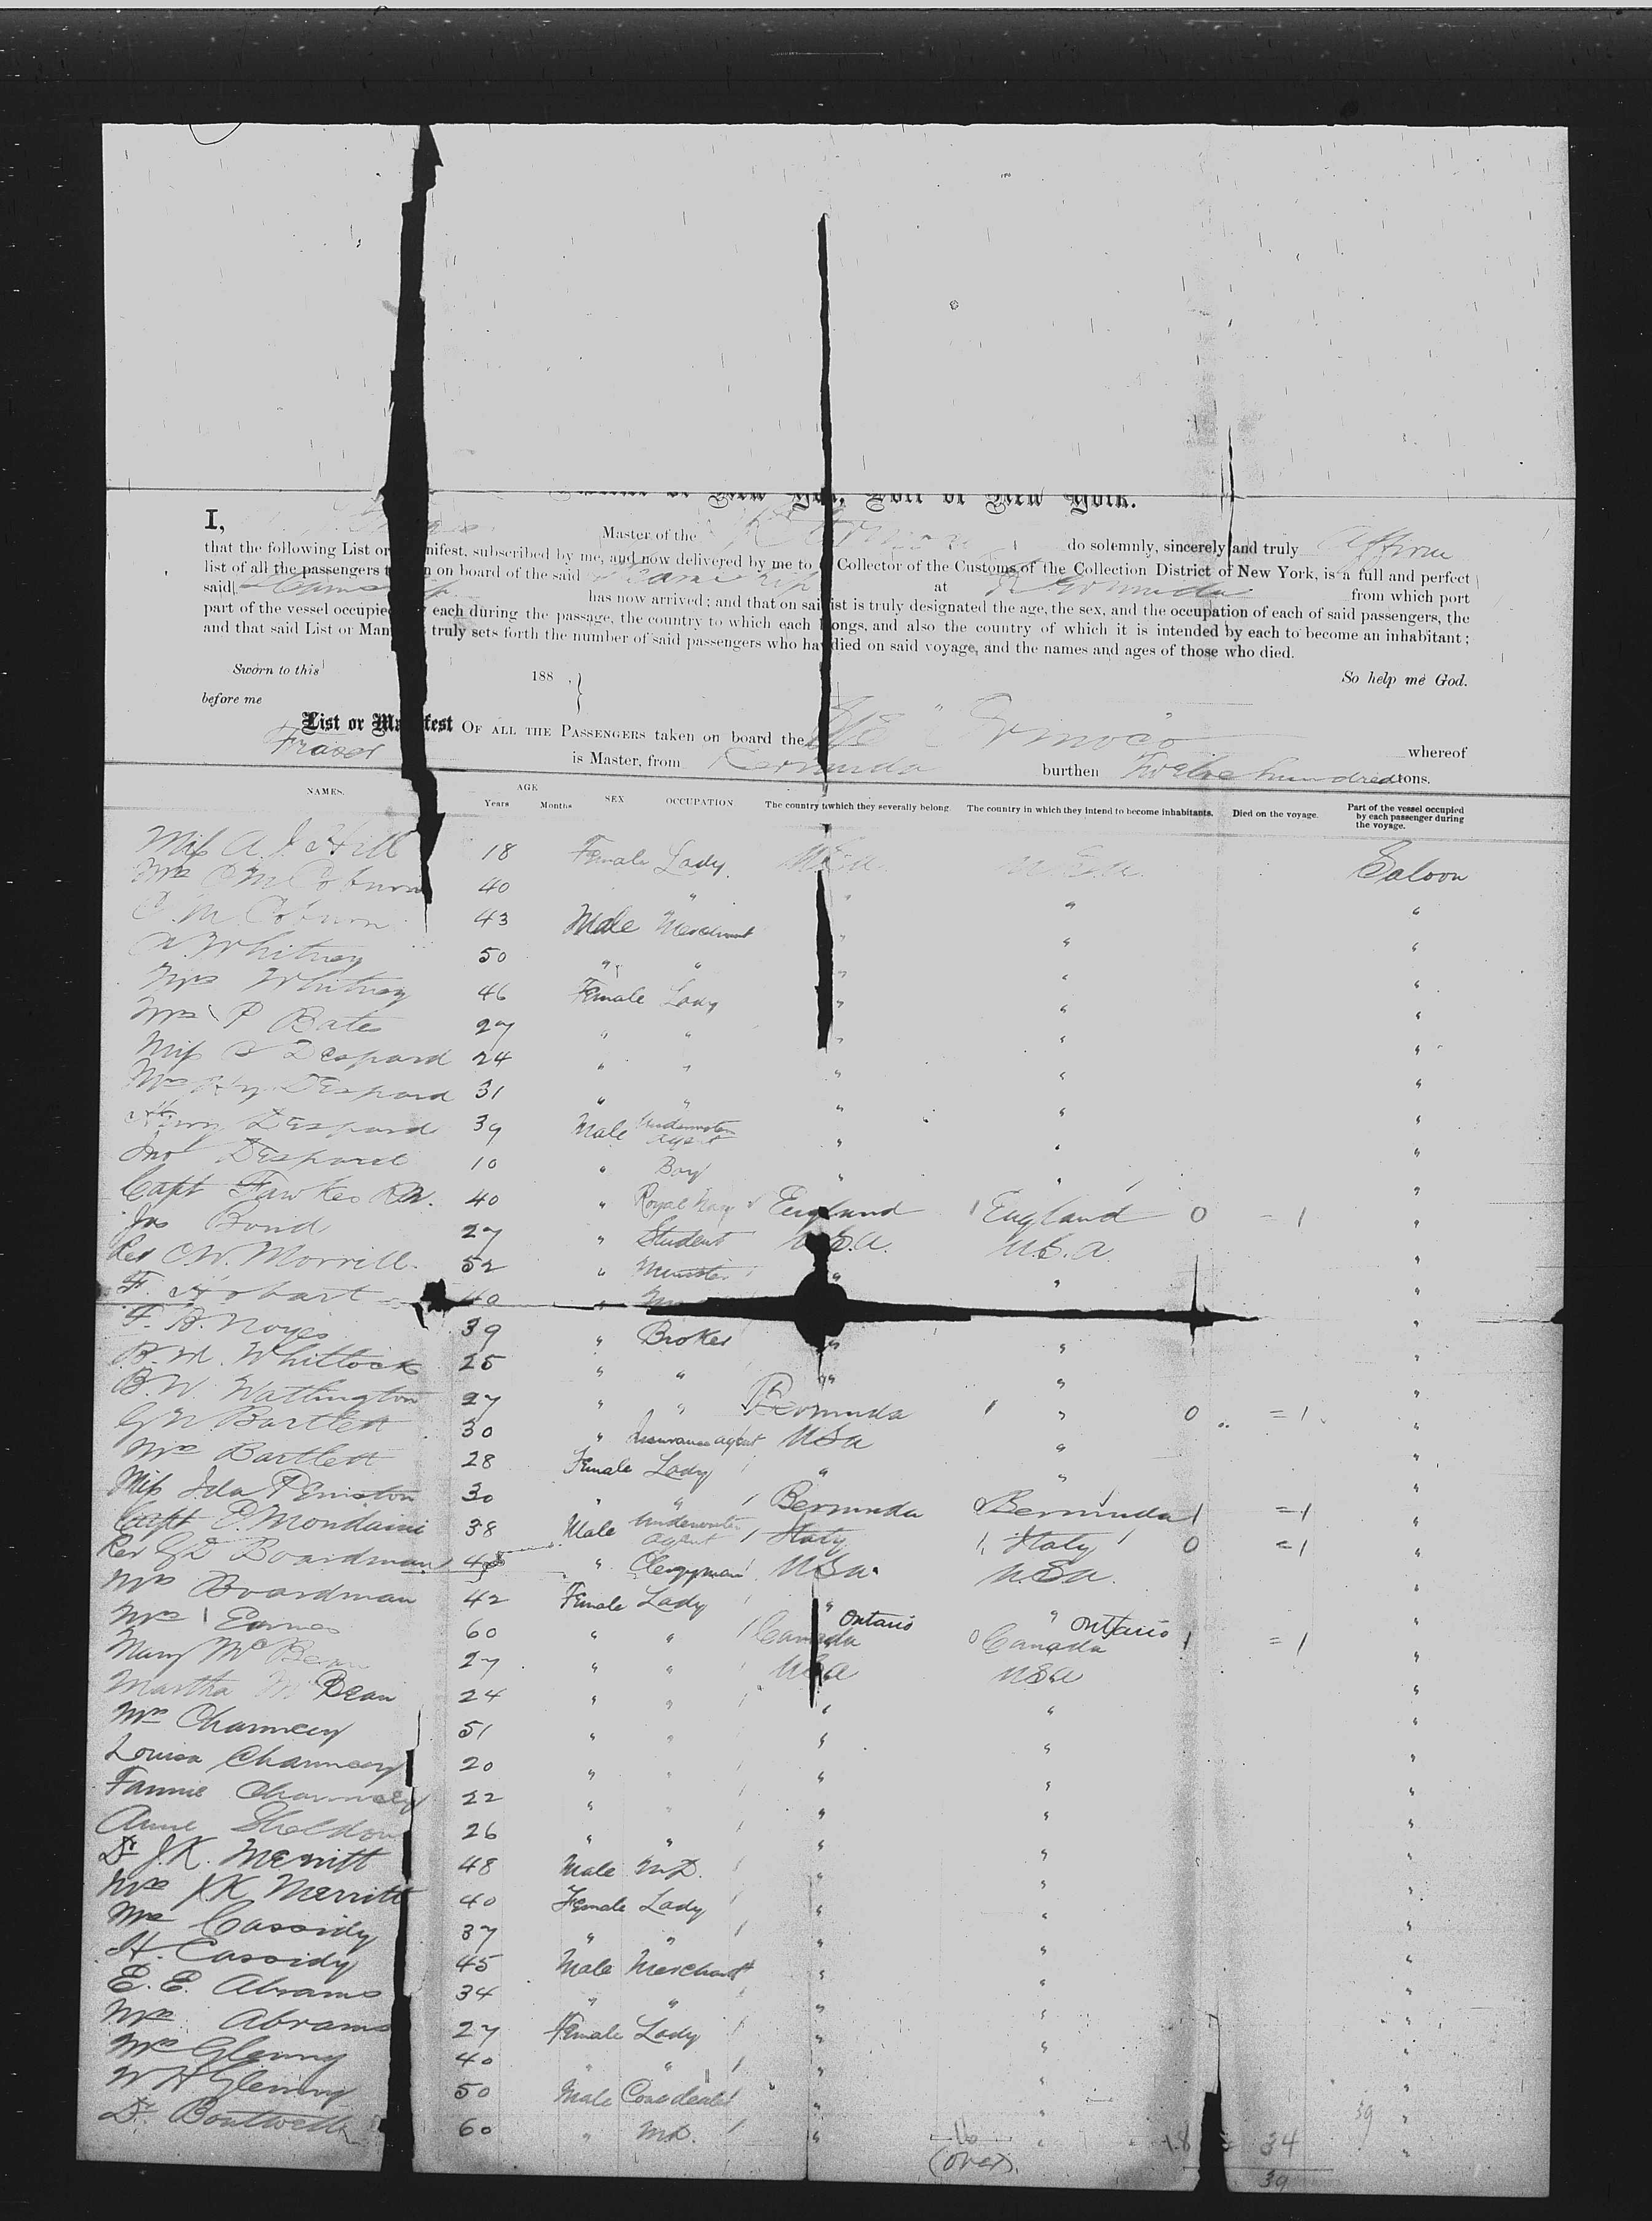 District of New York, Port of New York.
I, Master of the do solemnly, sincerely and truly affirm
that the following List or Manifest, subscribed by me, and now delivered by me to the Collector of the Customs of the Collection District of New York, is a full and perfect
list of all the passengers taken on board of the said Steamship at Bermuda from which port
said Steamship has now arrived; and that on said list is truly designated the age, the sex, and the occupation of each of said passengers, the
part of the vessel occupied by each during the passage, the country to which each belongs, and also the country of which it is intended by each to become an inhabitant;
and that said List or Manifest truly sets forth the number of said passengers who have died on said voyage, and the names and ages of those who died.
Sworn to this 188 . } So help me God.
before me
List or Manifest OF ALL THE PASSENGERS taken on board the "Orinoco" whereof
Fraser is Master, from Bermuda burthen Twelve hundred tons.
NAMES. AGE Years Months SEX OCCUPATION. The country to which they severally belong. The country in which they intend to become inhabitants. Died on the voyage. Part of the vessel occupied by each passenger during the voyage.
Miss A. J. Hill 18 Female Lady USA USA Saloon
Mrs C M Coburn 40 " " " "
C. M. Coburn 43 Male Merchant " " "
Whitney 50 " " " " "
Mrs Whitney 46 Female Lady " " "
Mrs P Bates 27 " " " " "
Miss Despard 24 " " " " "
Mrs Hy Despard 31 " " " " "
Henry Despard 39 Male Underwriters Agent " " "
Jno Despard 10 " Boy " " "
Capt Fawkes RN. 40 " Royal Navy England 1 England 0 - 1 "
Jos Bond 27 " Student U.S.A. U.S.A. "
Rev C.W. Morrill 52 " Minister " " "
F. Hobart 40 " "
F. B. Noyes 39 " Broker " " "
B. M. Whitlock 25 " " " " "
B. W. Watlington 27 " " Bermuda 1 " 0 = 1 "
G W Bartlett 30 " Insurance agent USA " "
Mrs Bartlett 28 Female Lady " " "
Miss Ida Peniston 30 " " 1 Bermuda Bermuda 1 = 1 "
Capt E. Mondaini 38 Male Underwriters agent 1 Italy 1 Italy 0 = 1 "
Rev G D Boardman 48 " Clergyman USA. USA. "
Mrs Boardman 42 Female Lady " " "
Mrs Eames 60 " " 1 Canada Ontario 0 Canada Ontario 1 = 1 "
Mary McBean 27 " " USA USA "
Martha McBean 24 " " " " "
Mrs Chauncey 51 " " " " "
Louisa Chauncey 20 " " " " "
Fannie Chauncey 22 " " " " "
Anne Sheldon 26 " " " " "
Dr J.K. Merritt 48 Male M.D. " " "
Mrs J.K Merritt 40 Female Lady " " "
Mrs Cassidy 37 " " " " "
H. Cassidy 45 Male Merchant " " "
E. E. Abrams 34 " " " " "
Mrs Abrams 27 Female Lady " " "
Mrs Glenny 40 " " " " "
W H Glenny 50 Male " " "
Dr. Boutwell 60 " M.D. " " "
16 18 = 34 39
(over). 39